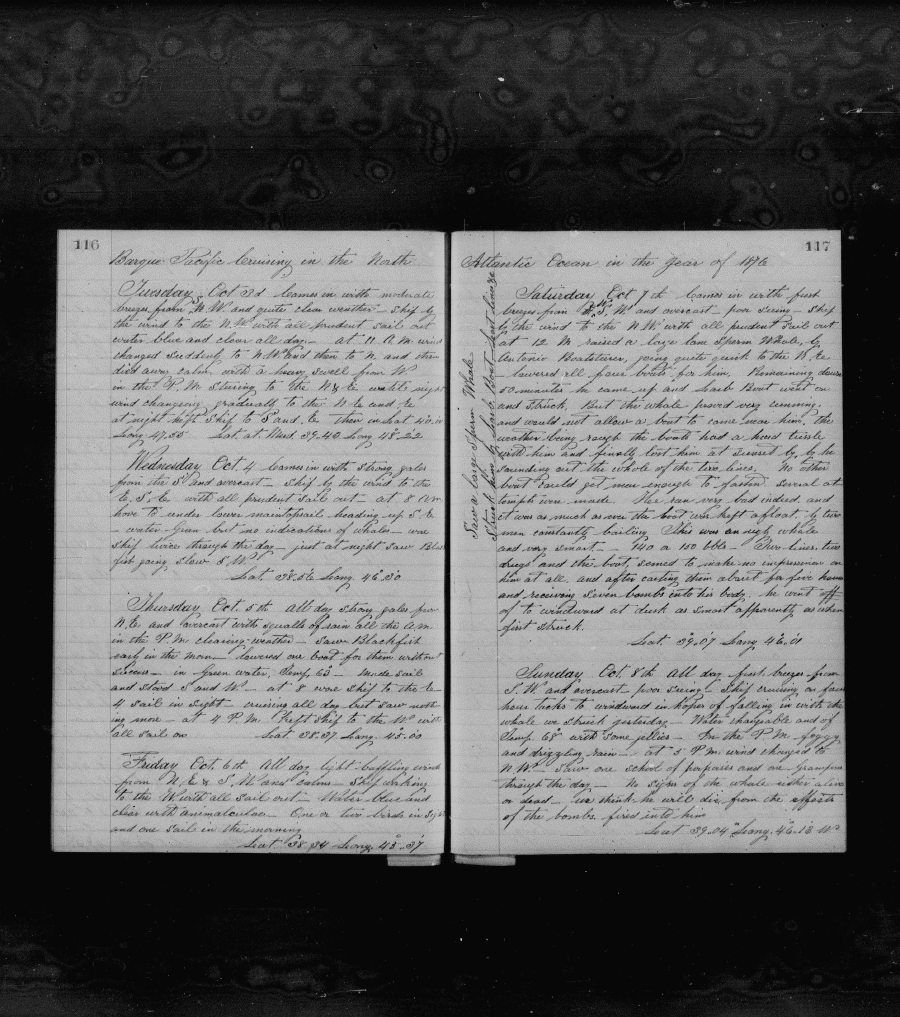 116
Barque Pacific Cruising in the North
Tuesday Oct 3d Comes in with moderate
breezes from S.W. and quite clear weather - Ship by
the wind to the N.W. with all prudent sail out
water blue and clear all day - at 11 A.M. wind
changed suddenly to N.W. and then to N. and then
died away calm with a heavy swell from W
in the P.M. steering to the N & E until night
wind changing gradually to the N E and E
at night kept Ship to S and E then in Lat 40.
Long 47.55 Lat. at Mid. 39.40 Long 48.22
Wednesday Oct 4 Comes in with strong gales
from the S and overcast - Ship by the wind to the
E. S. E. with all prudent sail out - at 8 A.M
hove to under lower maintopsail heading up S E
- water Green but no indications of whales - wore
Ship twice through the day - just at night saw Black
fish going slow S W
Lat. 38.56 Long. 46.30
Thursday Oct. 5th all day strong gales from
N.E. and overcast with squalls of rain all the A.M.
in the P.M. clearing weather - Saw Blackfish
early in the morn - lowered one boat for them without
success - in Green water, Temp. 63° - Made sail
and stood S and W - at 8 wore Ship to the E -
4 sail in sight cruising all day but saw noth
ing more - at 4 P.M. Kept ship to the W with
all sail on Lat 38.37 Long. 45.00
Friday Oct. 6th All day light baffling winds
from N.E & S.W. and calms - Ship working
to the W with all sail out - Water blue and
clear with animalculae - One or two birds in sight
and one sail in the morning
Lat 38 34 Long. 45.37
117
Atlantic Ocean in the Year of 1876
Saw a large Sperm Whale
Struck him by Larb. Boat lost line &c
Saturday Oct 7th Comes in with fresh
breezes from S. W and overcast - poor seeing - Ship
by the wind to the N.W with all prudent sail out
at 12 M raised a large lone Sperm Whale, by
Antonio Boatsteerer, going quite quick to the N.E
- lowered all four boats for him, Remaining down
50 minutes he came up and Larb Boat went on
and struck, But the whale proved very cunning
and would not allow a boat to come near him, the
weather being rough the boats had a hard tussle
with him and finally lost him at sunset by, by he
sounding out the whole of the two lines. No other
boat could get near enough to fasten several at-
tempts were made. He ran very bad indeed, and
it was as much as ever the boat was kept afloat, by two
men constantly bailing This was an ugly whale
and very smart - - 140 or 150 bbls - Two lines, two
drugs and the boat, seemed to make no impression on
him at all, and after carting them about for five hours
and receiving seven bombs into his body, he went off
of to windward at dusk as smart apparently as when
first struck.
Lat. 39.07 Long 46.01
Sunday Oct. 8th All day fresh breezes from
S.W. and overcast poor seeing - Ship cruising on four
hour tacks to windward in hopes of falling in with the
whale we struck yesterday - Water changeable and of
Temp 68° with some jellies - In the P.M. foggy
and drizzling rain - at 5 P.M. wind changed to
N.W. - Saw one school of porpoises and one Grampus
through the day - No signs of the whale either alive
or dead - we think he will die from the effects
of the bombs fired into him
Lat 39.04 Long. 46.13 W